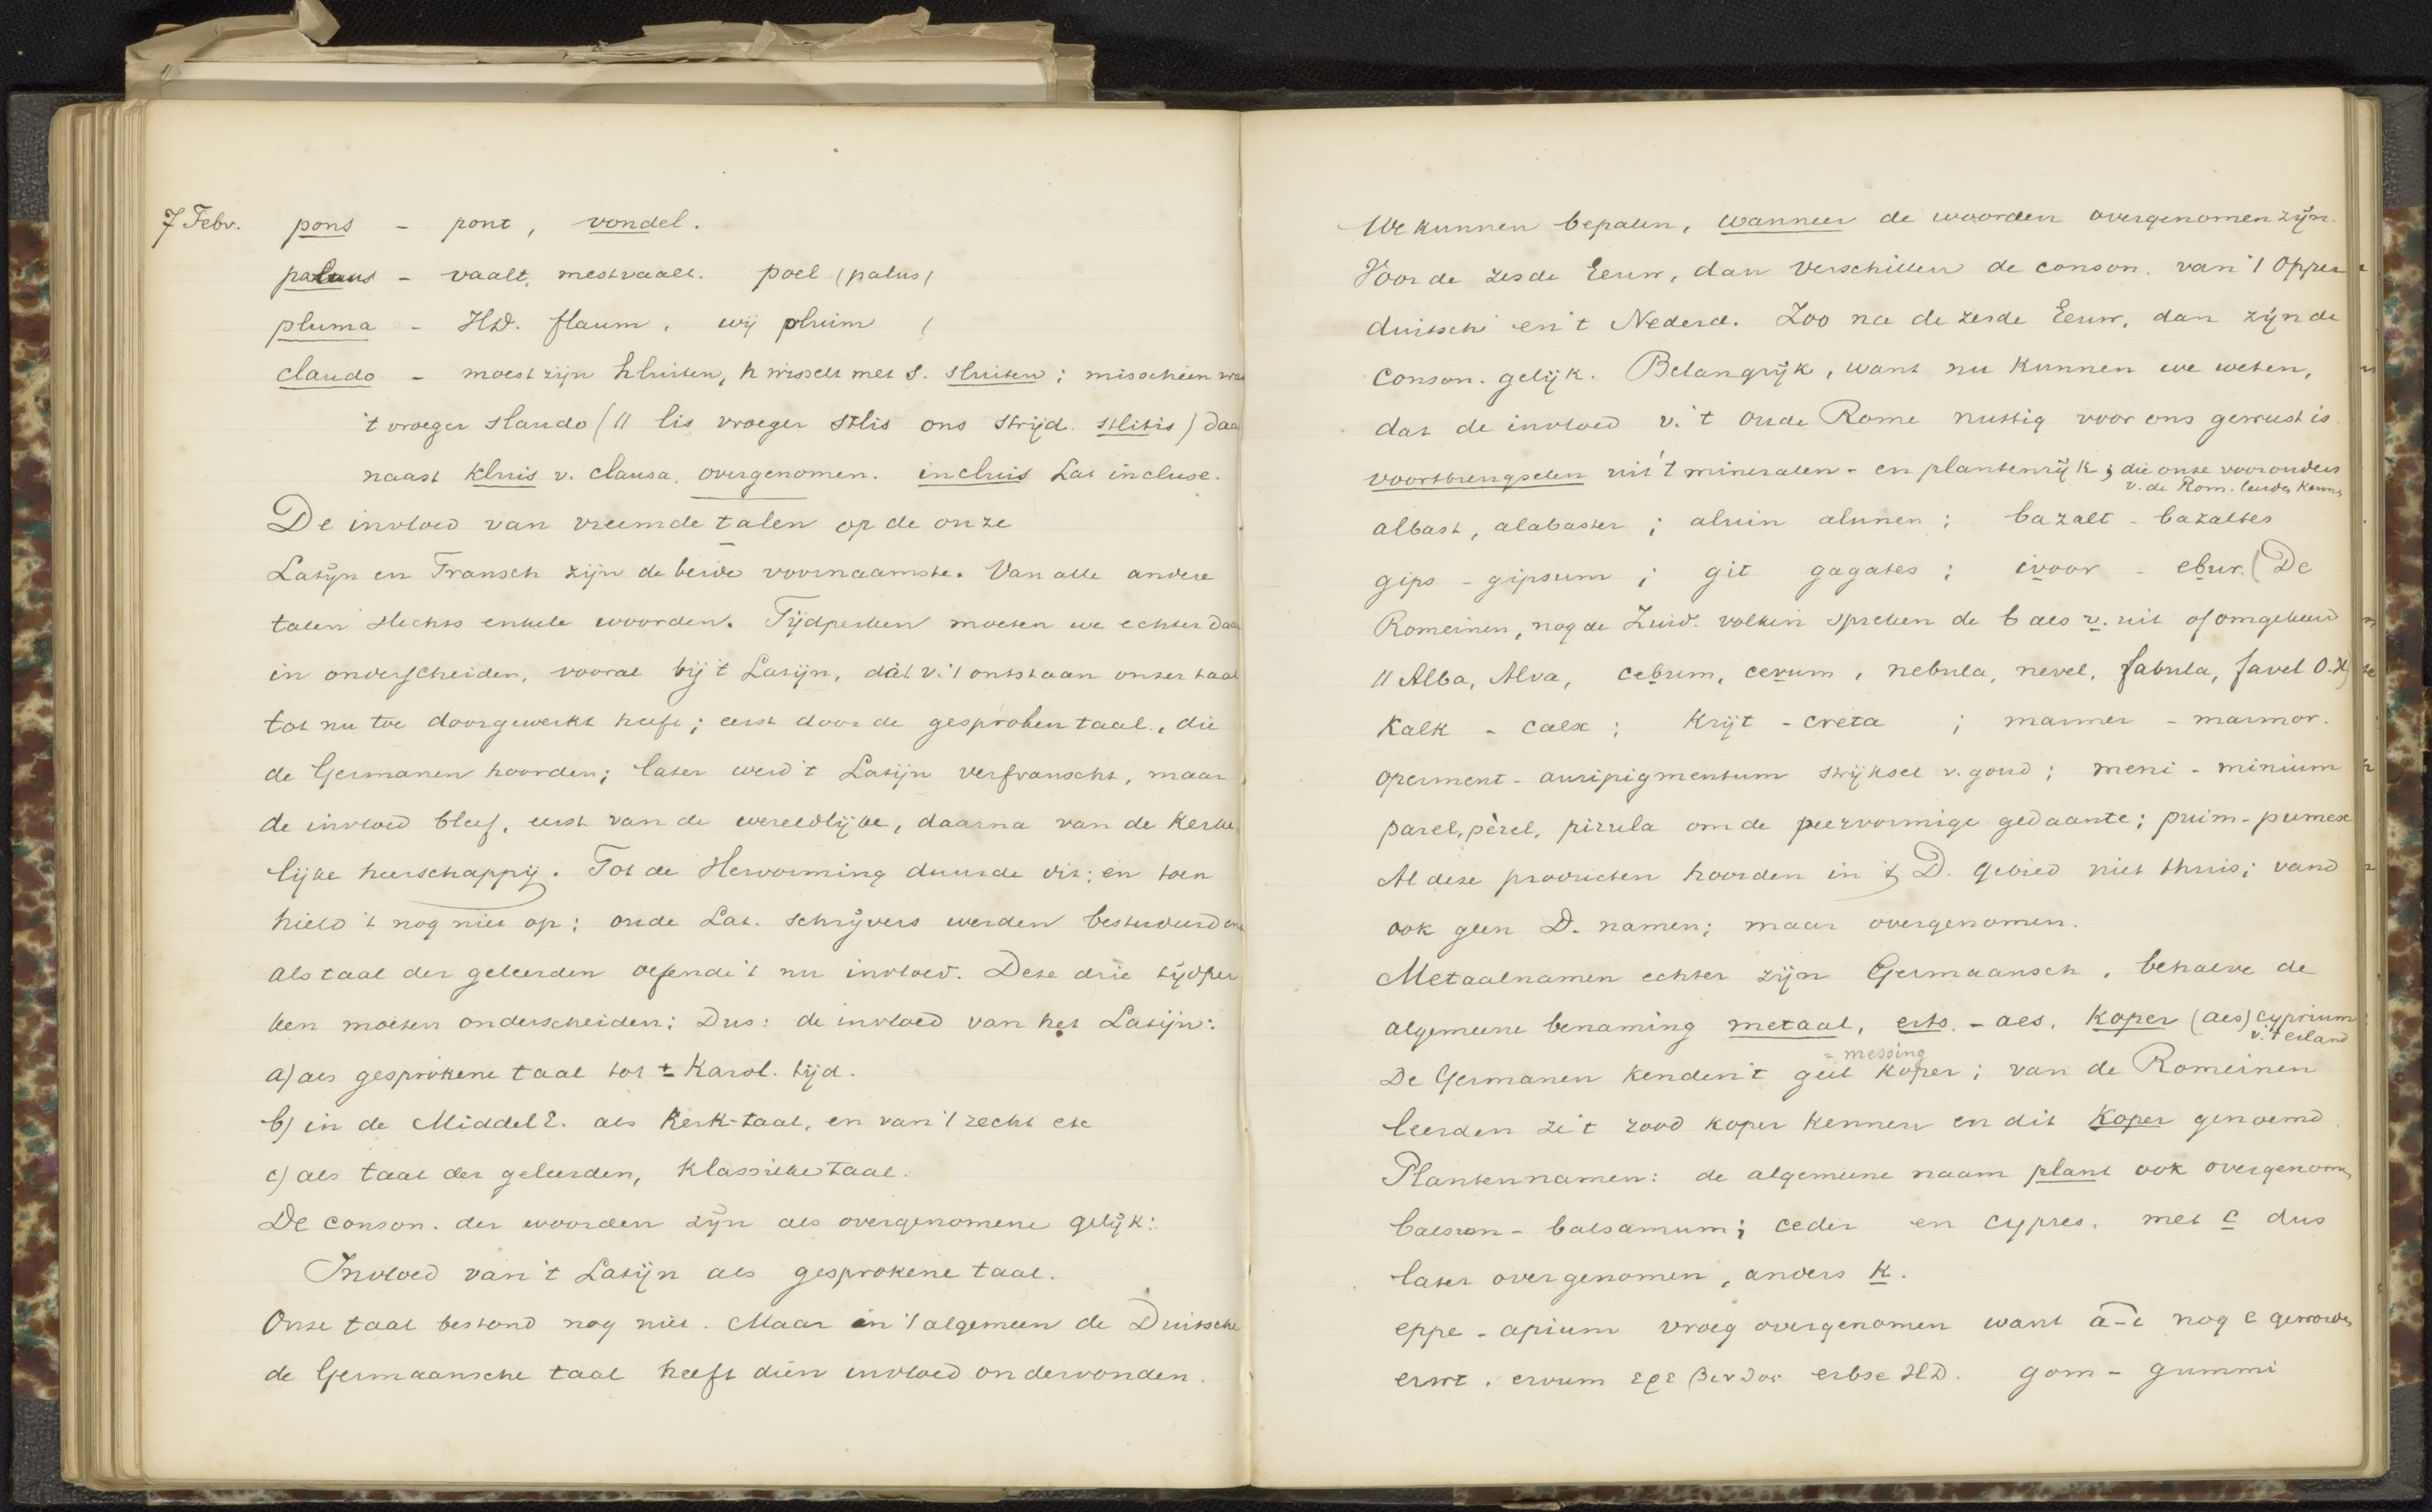 7 Febr. pons - pont, vondel.
palus - vaalt, mestvaalt. poel (palus)
pluma - HD. flaum, wij pluim (
claudo - moest zijn hluiten, h wisselt met s. sluiten; misschien was
't vroeger sklaudo (// lis vroeger stlis ons strijd. stlitis) Daar
naast kluis v. clausa, overgenomen. incluis Lat incluse.
De invloed van vreemde talen op de onze
Latijn en Fransch zijn de beide voornaamste. Van alle andere
talen slechts enkele woorden. Tijdperken moeten we echter daar
in onderscheiden, vooral bij 't Latijn, dat v. 't ontstaan onzer taal
tot nu toe doorgewerkt heeft; eerst door de gesproken taal, die
de Germanen hoorden; later werd 't Latijn verfranscht, maar
de invloed bleef, eerst van de wereldlijke, daarna van de kerke
lijke heerschappij. Tot de Hervorming duurde dit; en toen
hield 't nog niet op; oude Lat. schrijvers werden bestudeerd en
als taal der geleerden oefende 't nu invloed. Deze drie tijdper
ken moeten onderscheiden: Dus: de invloed van het Latijn:
a) als gesprokene taal tot ± Karol. tijd.
b) in de Middel E. als Kerk-taal, en van 't recht etc
c) als taal der geleerden, klassieke taal.
De conson. der woorden zijn als overgenomene gelijk:
Invloed van 't Latijn als gesprokene taal.
Onze taal bestond nog niet. Maar in 't algemeen de Duitsche
de Germaansche taal heeft dien invloed ondervonden.
We kunnen bepalen, wanneer de woorden overgenomen zijn.
Vóór de zesde Eeuw, dan verschillen de conson. van 't Opper
duitsch en 't Nederd. Zoo na de zesde Eeuw, dan zijn de
conson. gelijk. Belangrijk, want nu kunnen we weten,
dat de invloed v. 't oude Rome nuttig voor ons geweest is.
voortbrengselen uit 't mineralen- en plantenrijk; die onze voorouders
v. de Rom. leerden kennen
albast, alabaster; aluin alunen; bazalt - bazaltes
gips - gipsum; git gagates; ivoor - ebur. (De
Romeinen, nog de Zuid. volken spreken de b als v. uit of omgekeerd
// Alba, Alva, cebum, cevum, nebula, nevel, fabula, favel O.H)
Kalk - calx; Krijt - creta; marmer - marmor.
operment - auripigmentum strijksel v. goud; meni - minium
parel, pèrel, pirula om de peervormige gedaante; puim - pumex
Al deze producten hoorden in 't D. gebied niet thuis; vand
ook geen D. namen; maar overgenomen.
Metaalnamen echter zijn Germaansch, behalve de
algemeene benaming metaal, erts. - aes. Koper (aes) cyprium
v. 't eiland
= messing
De Germanen kenden 't geel koper; van de Romeinen
leerden ze 't rood koper kennen en dit Koper genoemd.
Plantennamen: de algemeene naam plant ook overgenomen
balsem - balsamum; ceder en cypres, met c dus
later overgenomen, anders k.
eppe - apium vroeg overgenomen want a-i nog e geworden
erwt, ervum ερεβινδος erbse HD. gom - gummi